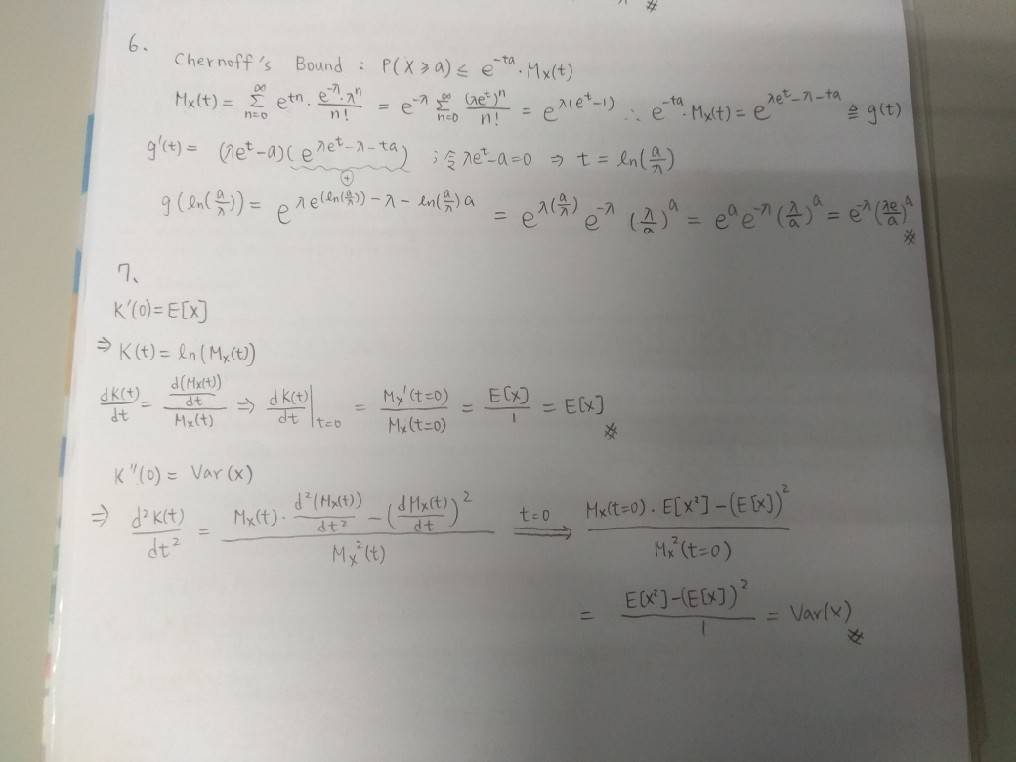 6.
Chernoff's Bound : P(X ≥ a) ≤ e^{-ta} · M_X(t)
M_X(t) = \sum_{n=0}^{∞} e^{tn} · \frac{e^{-λ} · λ^n}{n!} = e^{-λ} \sum_{n=0}^{∞} \frac{(λe^t)^n}{n!} = e^{λ(e^t-1)} ∴ e^{-ta} · M_X(t) = e^{λe^t-λ-ta} ≜ g(t)
g'(t) = (λe^t-a)(e^{λe^t-λ-ta}) ; 令 λe^t-a=0 ⇒ t = ln(\frac{a}{λ})
⊕
g(ln(\frac{a}{λ})) = e^{λe^{(ln(\frac{a}{λ}))}-λ-ln(\frac{a}{λ})a} = e^{λ(\frac{a}{λ})} e^{-λ} (\frac{λ}{a})^a = e^a e^{-λ} (\frac{λ}{a})^a = e^{-λ} (\frac{λe}{a})^a ※
7、
K'(0) = E[X]
⇒ K(t) = ln(M_X(t))
\frac{dK(t)}{dt} = \frac{\frac{d(M_X(t))}{dt}}{M_X(t)} ⇒ \frac{dK(t)}{dt}|_{t=0} = \frac{M_X'(t=0)}{M_X(t=0)} = \frac{E[X]}{1} = E[X] ※
K''(0) = Var(X)
⇒ \frac{d^2K(t)}{dt^2} = \frac{M_X(t) · \frac{d^2(M_X(t))}{dt^2} - (\frac{dM_X(t)}{dt})^2}{M_X^2(t)} \xRightarrow{t=0} \frac{M_X(t=0) · E[X^2] - (E[X])^2}{M_X^2(t=0)}
= \frac{E[X^2]-(E[X])^2}{1} = Var(X) ※